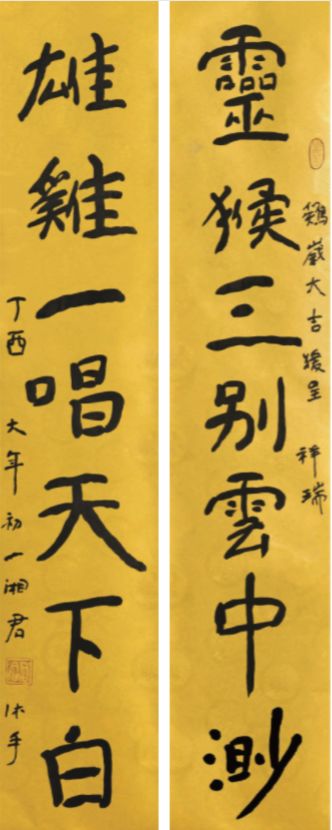 鷄歲大吉呈祥瑞
靈猴三别雲中渺
雄雞一唱天下白
丁酉大年初一湘君沐手